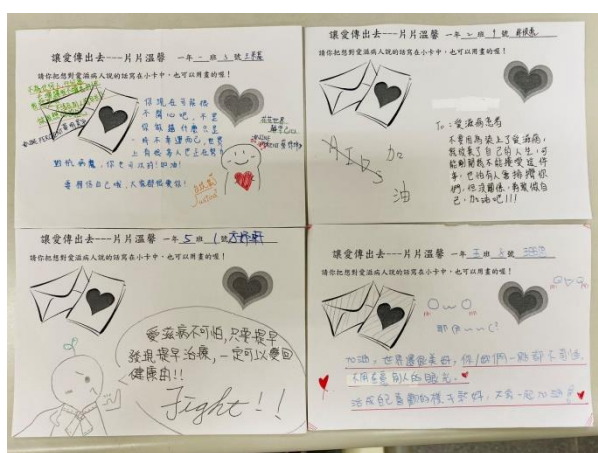 讓愛傳出去---片片溫馨 一年一班3號
請你把想對愛滋病人說的話寫在小卡中，也可以用畫的喔！
你現在可能很
不開心吧，不是
你做錯什麼只是
時不幸運而已，世界
上有很多人也正在努力
對抗病魔，你也可以的！加油！
要相信自己哦，大家都很愛你！
讓愛傳出去---片片溫馨 一年2班9號
請你把想對愛滋病人說的話寫在小卡中，也可以用畫的喔！
AIDS加油
To：愛滋病患者
不要因為染上了愛滋病，
就放棄了自己的人生，可
能剛開始不能接受這件
事，也怕有人會排擠你
們，但沒關係，勇敢做自
己，加油吧!!!
讓愛傳出去---片片溫馨 一年5班1號
請你把想對愛滋病人說的話寫在小卡中，也可以用畫的喔！
愛滋病不可怕，只要提早
發現提早治療，一定可以變回
健康的!!
Fight!!
讓愛傳出去---片片溫馨 一年五班8號
請你把想對愛滋病人說的話寫在小卡中，也可以用畫的喔！
加油，世界還很美好，你/妳們一點都不奇怪，
不用在意別人的眼光。
活成自己喜歡的樣子就好，不要一起加油！